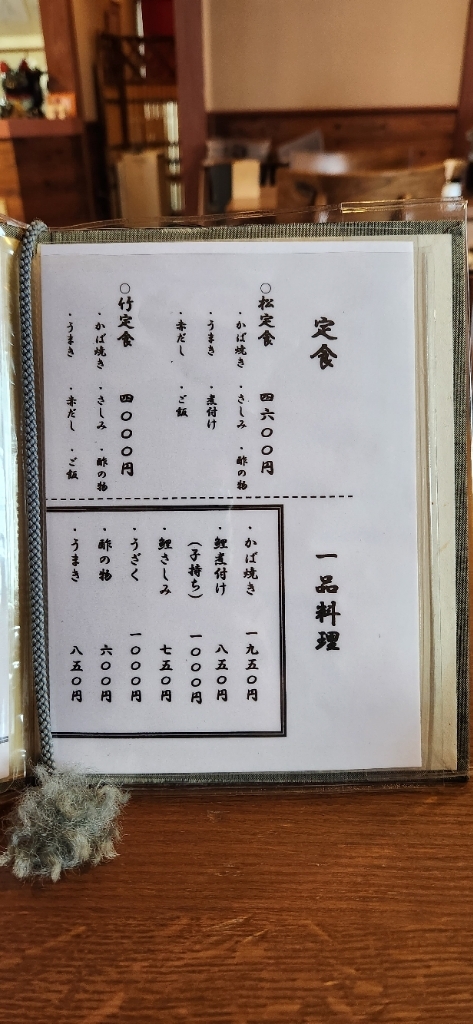 定食
○松定食 四六〇〇円
・かば焼き ・さしみ ・酢の物
・うまき ・煮付け
・赤だし ・ご飯
○竹定食 四〇〇〇円
・かば焼き ・さしみ ・酢の物
・うまき ・赤だし ・ご飯
一品料理
・かば焼き 一九五〇円
・鯉煮付け 八五〇円
(子持ち) 一〇〇〇円
・鯉さしみ 七五〇円
・うざく 一〇〇〇円
・酢の物 六〇〇円
・うまき 八五〇円